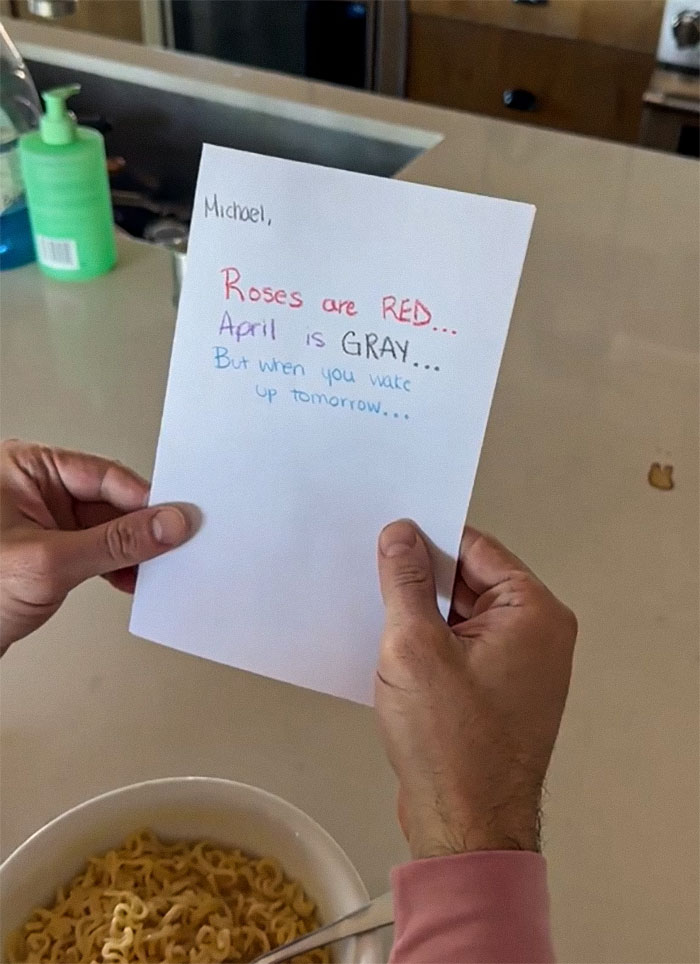 Michael,
Roses are RED...
April is GRAY...
But when you wake
up tomorrow...